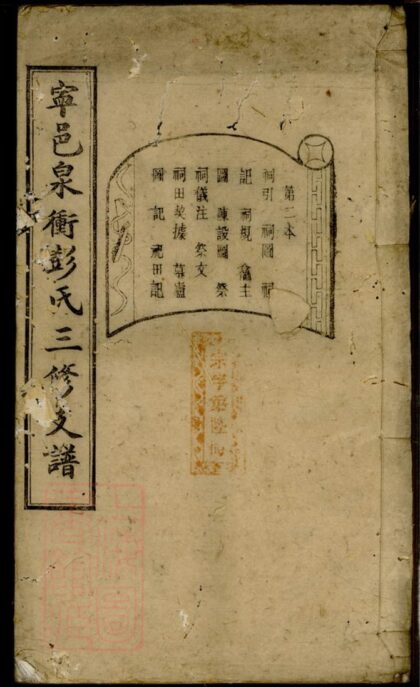 寧邑泉衝彭氏三修支譜
第二本
祠引 祠圖 祠
記 祠規 龕主
圖 陳設圖 祭
祠儀注 祭文
祠田契據 墓廬
圖 記 祀田記